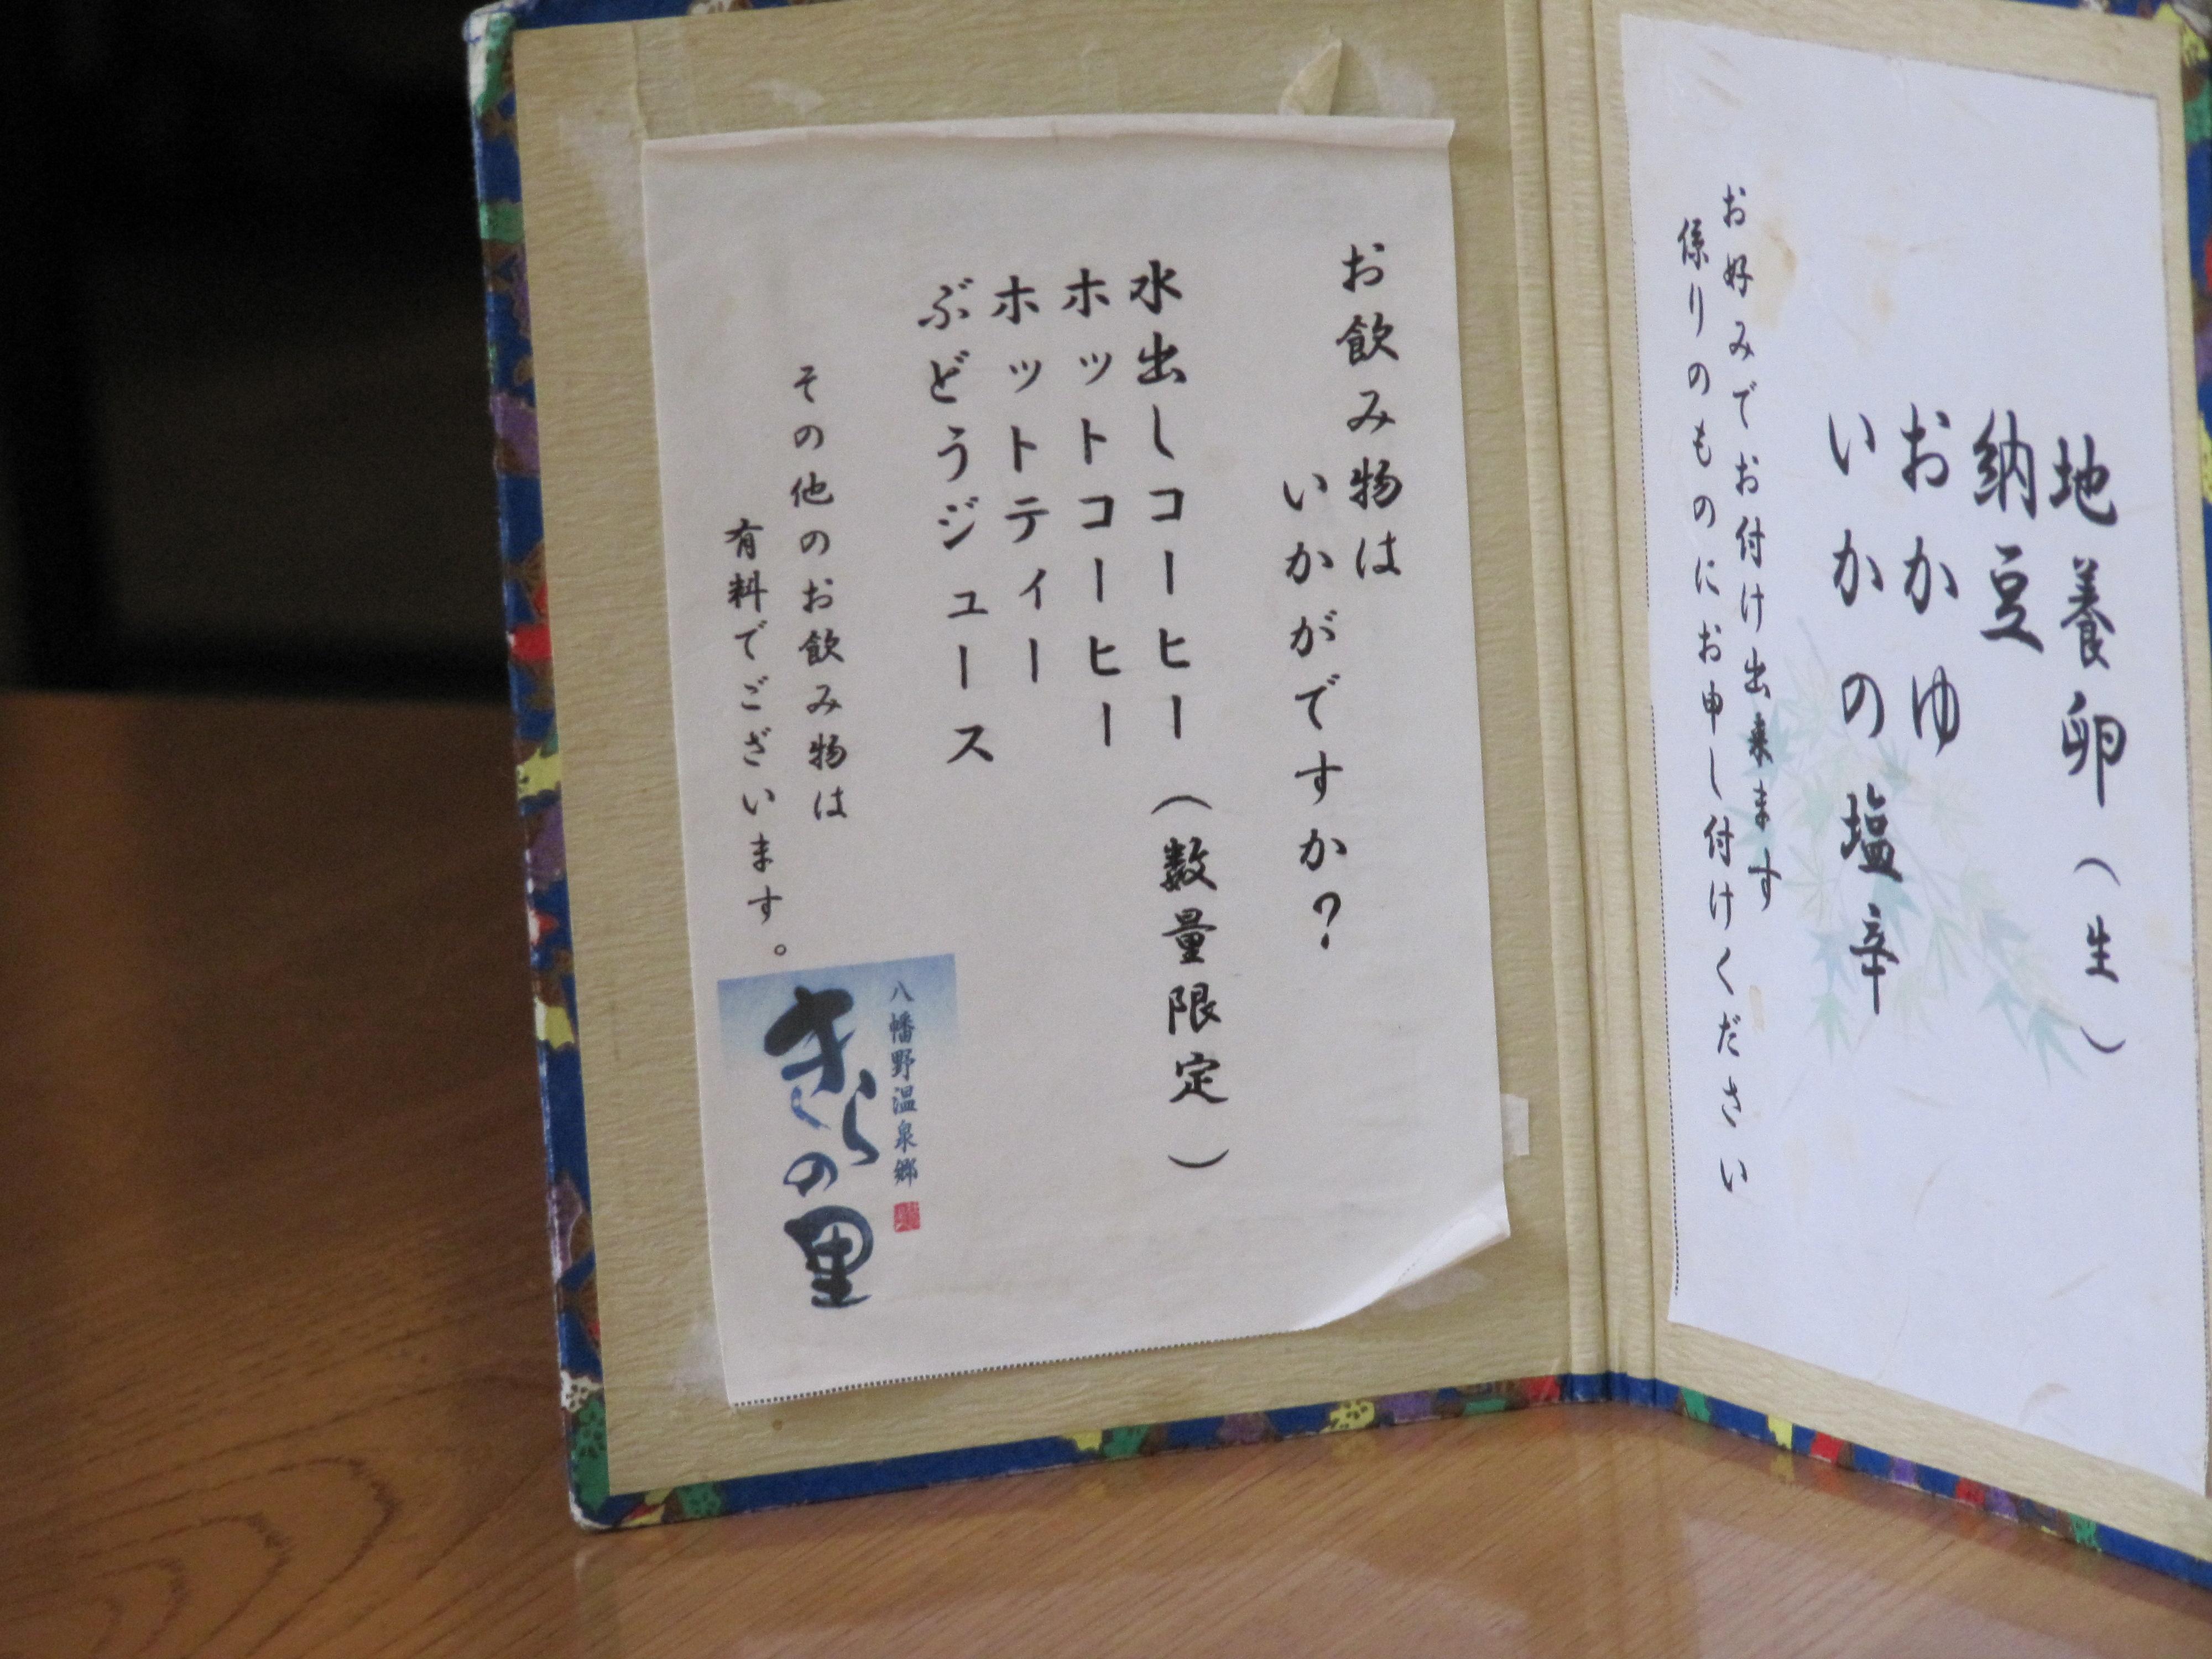 地養卵（生）
納豆
おかゆ
いかの塩辛
お好みでお付け出来ます
係りのものにお申し付けください
お飲み物は
いかがですか？
水出しコーヒー（数量限定）
ホットコーヒー
ホットティー
ぶどうジュース
その他のお飲み物は
有料でございます。
八幡野温泉郷
きらの里